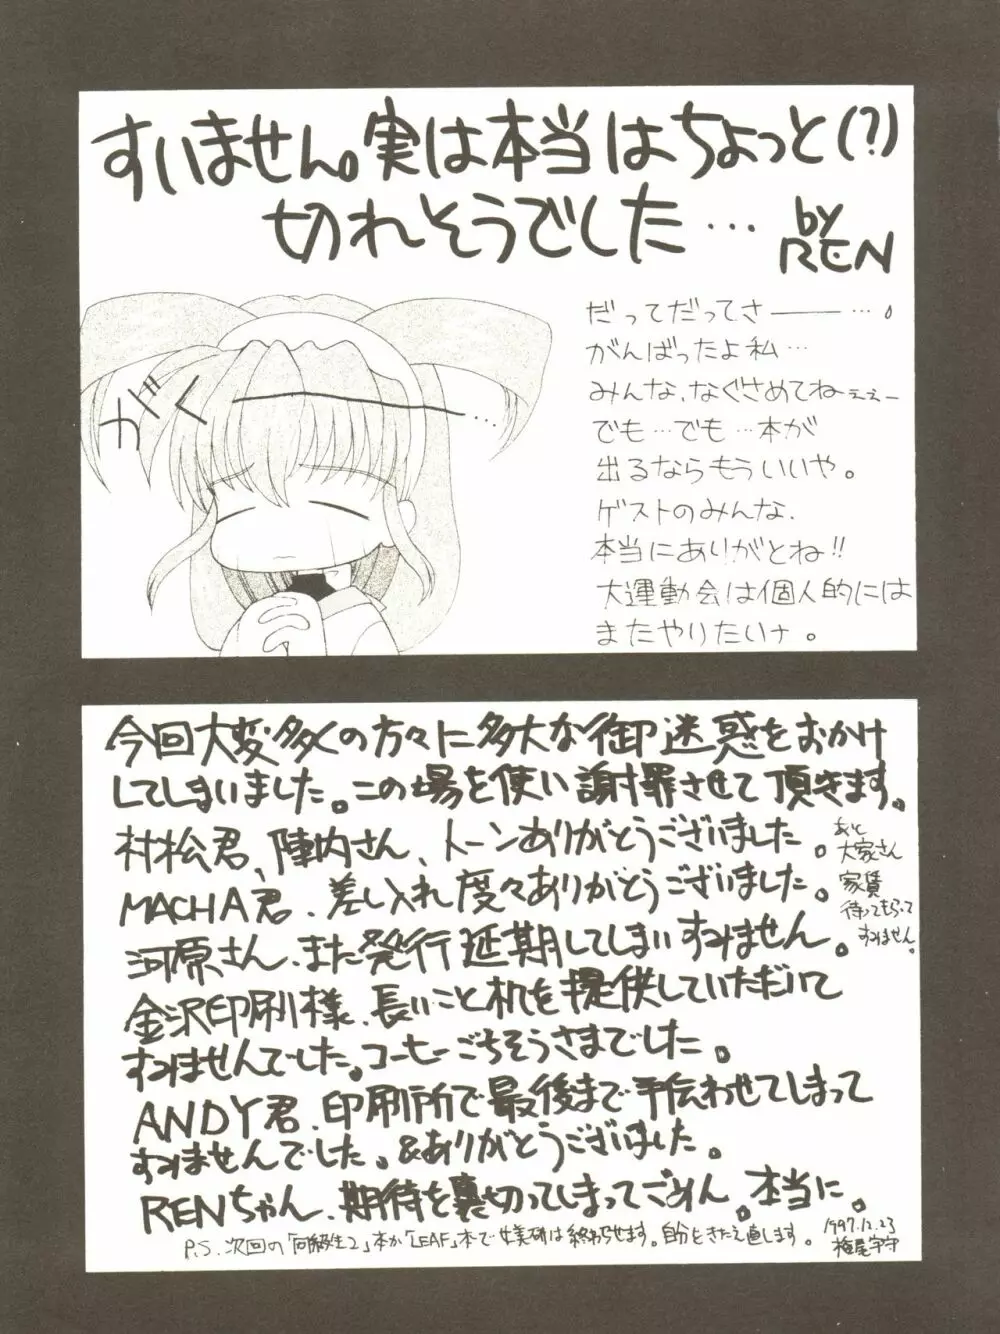 すいません。実は本当はちょっと(?)
切れそうでした…
by
REN
がくーー…
だってだってさ――…。
がんばったよ私…
みんな、なぐさめてねぇぇー
でも…でも…本が
出るならもういいや。
ゲストのみんな、
本当にありがとね!!
大運動会は個人的には
またやりたいナ。
今回大変多くの方々に多大な御迷惑をおかけ
してしまいました。この場を使い謝罪させて頂きます。
村松君、陣内さん、トーンありがとうございました。
MACHA君、差し入れ度々ありがとうございました。
河原さん、また発行延期してしまいすみません。
あと
大家さん
家賃
待ってもらって
すみません。
金沢印刷様、長いこと机を提供していただいて
すみませんでした。コーヒーごちそうさまでした。
ANDY君、印刷所で最後まで手伝わせてしまって
すみませんでした。&ありがとうございました。
RENちゃん、期待を裏切ってしまってごめん。本当に。
P.S. 次回の「同級生2」本か「LEAF」本で女美研は終わらせます。自分をきたえ直します。
1997.12.23
梅尾宇守